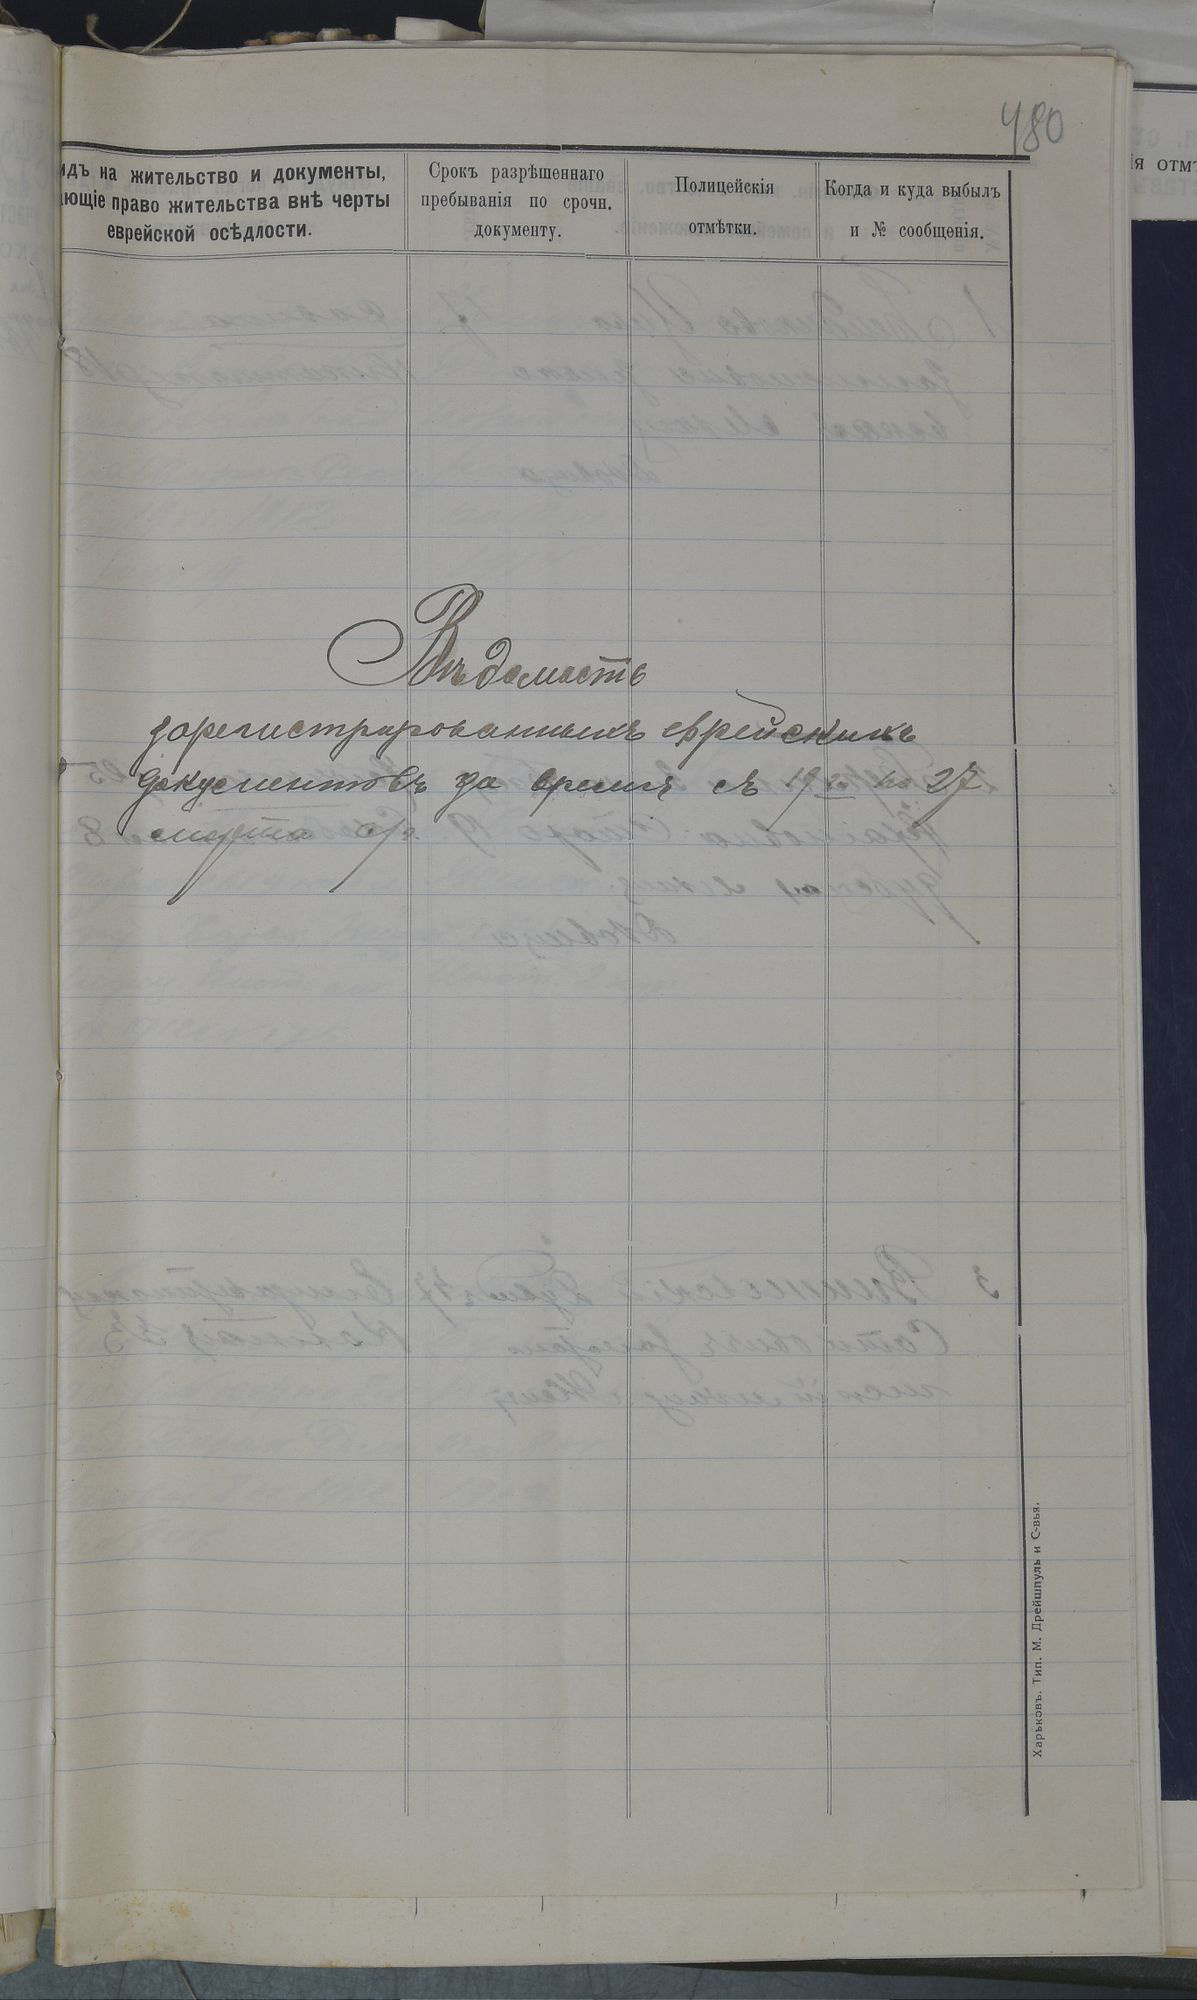 480
идъ на жительство и документы,
ающіе право жительства внѣ черты
еврейской осѣдлости.
Срокъ разрѣшеннаго
пребыванія по срочн.
документу.
Полицейскія
отмѣтки.
Когда и куда выбылъ
и № сообщенія.
ія отмѣ
Вѣдомость
зарегистрированныхъ еврейскихъ
документовъ за время съ 19 по 27
марта с/г.
Харьковъ. Тип. М. Дрейшпуль и С-вья.